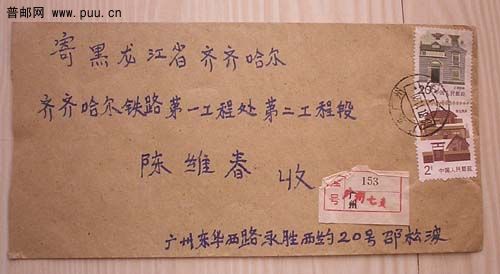 普邮网
www.puu.cn
寄黑龙江省齐齐哈尔
齐齐哈尔铁路第一工程处第二工程段
陈维春 收
广州东华西路永胜西约20号邵松波
153
号
广州
20
中国人民邮政
2
中国人民邮政